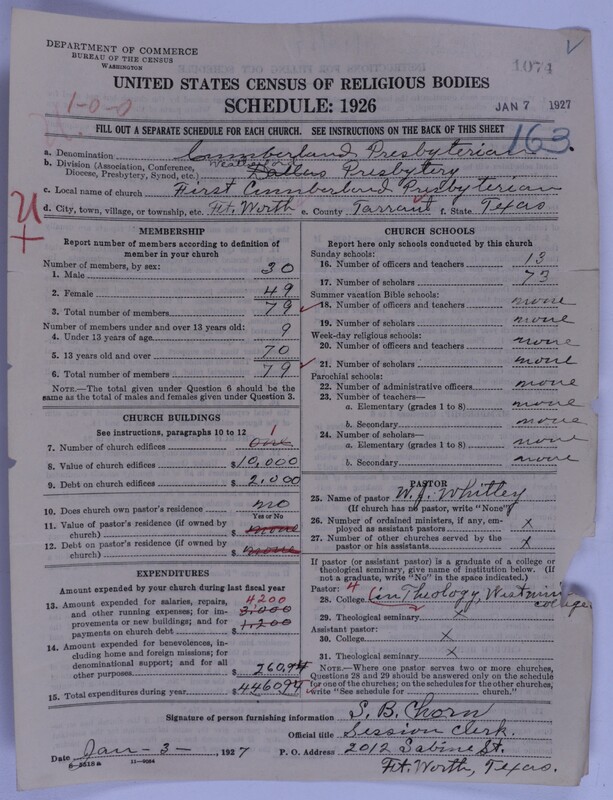 DEPARTMENT OF COMMERCE
BUREAU OF THE CENSUS
WASHINGTON
1074
UNITED STATES CENSUS OF RELIGIOUS BODIES
1-0-0
SCHEDULE: 1926
JAN 7 1927
FILL OUT A SEPARATE SCHEDULE FOR EACH CHURCH. SEE INSTRUCTIONS ON THE BACK OF THIS SHEET
163
a. Denomination Cumberland Presbyterian
b. Division (Association, Conference, Diocese, Presbytery, Synod, etc.) Weatherford Dallas Presbytery
c. Local name of church First Cumberland Presbyterian
d. City, town, village, or township, etc. Ft. Worth e. County Tarrant f. State Texas
MEMBERSHIP
Report number of members according to definition of
member in your church
Number of members, by sex:
1. Male 30
2. Female 49
3. Total number of members 79
Number of members under and over 13 years old:
4. Under 13 years of age 9
5. 13 years old and over 70
6. Total number of members 79
NOTE.—The total given under Question 6 should be
the same as the total of males and females given under Question 3.
CHURCH BUILDINGS
See instructions, paragraphs 10 to 12
7. Number of church edifices one 1
8. Value of church edifices $10,000
9. Debt on church edifices $2,000
10. Does church own pastor's residence? no
Yes or No
11. Value of pastor's residence (if owned by
church) $none
12. Debt on pastor's residence (if owned by
church) $none
EXPENDITURES
Amount expended by your church during last fiscal year
13. Amount expended for salaries, repairs, 4200
and other running expenses; for im- 3,000
provements or new buildings; and for
payments on church debt $1,200
14. Amount expended for benevolences, in-
cluding home and foreign missions; for
denominational support; and for all
other purposes $260,94
15. Total expenditures during year $4460,94
CHURCH SCHOOLS
Report here only schools conducted by this church
Sunday schools:
16. Number of officers and teachers 13
17. Number of scholars 73
Summer vacation Bible schools:
18. Number of officers and teachers none
19. Number of scholars none
Week-day religious schools:
20. Number of officers and teachers none
21. Number of scholars none
Parochial schools:
22. Number of administrative officers none
23. Number of teachers—
a. Elementary (grades 1 to 8) none
b. Secondary none
24. Number of scholars—
a. Elementary (grades 1 to 8) none
b. Secondary none
PASTOR
25. Name of pastor W. J. Whitley
(If church has no pastor, write "None")
26. Number of ordained ministers, if any, em-
ployed as assistant pastors x
27. Number of other churches served by the
pastor or his assistants x
If pastor (or assistant pastor) is a graduate of a college or
theological seminary, give name of institution below. (If
not a graduate, write "No" in the space indicated.)
Pastor: 4
28. College (in Theology, Westmin college
29. Theological seminary x
Assistant pastor:
30. College x
31. Theological seminary x
NOTE.—Where one pastor serves two or more churches,
Questions 28 and 29 should be answered only on the schedule
for one of the churches; on the schedules for the other churches,
write "See schedule for church."
Signature of person furnishing information S. B. Chorn
Official title Session Clerk.
Date Jan-3-, 1927
P. O. Address 2012 Sabine St.
Ft. Worth, Texas.